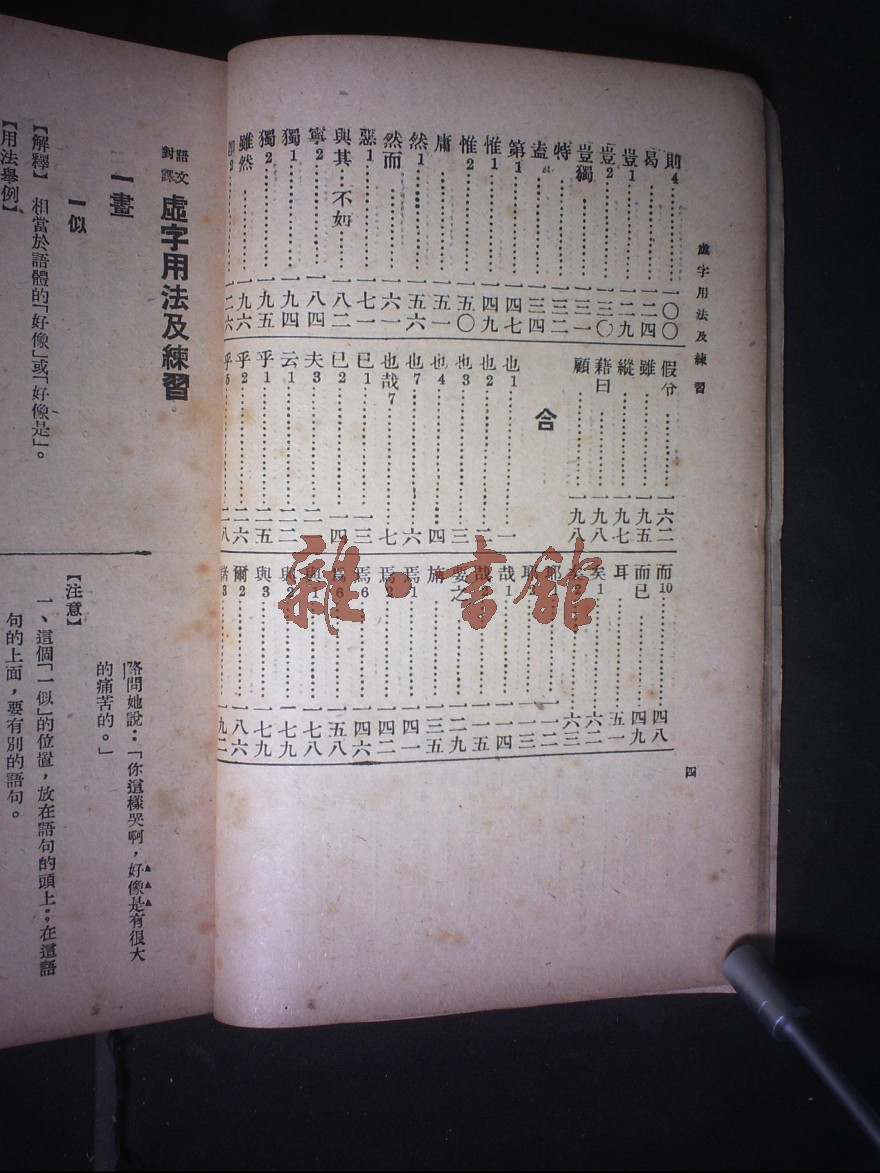 虛字用法及練習
四
則4……一〇〇
曷……一二四
豈1……一二九
豈2……一三〇
豈獨……一三一
特……一三二
盍……一三四
第1……一四七
惟1……一四九
惟2……一五〇
庸……一五一
然1……一五六
然而……一六一
惡1……一七一
與其…不如……一八二
寧2……一八四
獨1……一九四
獨2……一九五
雖然……一九六
假令……一六二
雖……一九五
縱……一九七
藉曰……一九八
顧……一九八
合
也1……一
也2……二
也3……三
也4……四
也7……六
也哉7……七
已1……一三
已2……一四
夫3……二一
云1……二二
乎1……二五
乎2……二六
乎5……二八
而10……四八
而已……四九
耳……五一
矣1……六二
矣2……六三
哉1……一一四
哉2……一一五
要之……一二九
施……一三五
焉1……一四一
焉2……一四二
焉6……一四六
爲6……一五八
與1……一七八
與2……一七九
與3……一七九
爾2……一八六
諸3……一九二
語文對譯 虛字用法及練習
一畫
一似
【解釋】 相當於語體的「好像」或「好像是」。
【用法舉例】
路問她說：「你這樣哭啊，好像是有很大
的痛苦的。」
【注意】
一、這個「一似」的位置，放在語句的頭上；在這語
句的上面，要有別的語句。
雜·書館